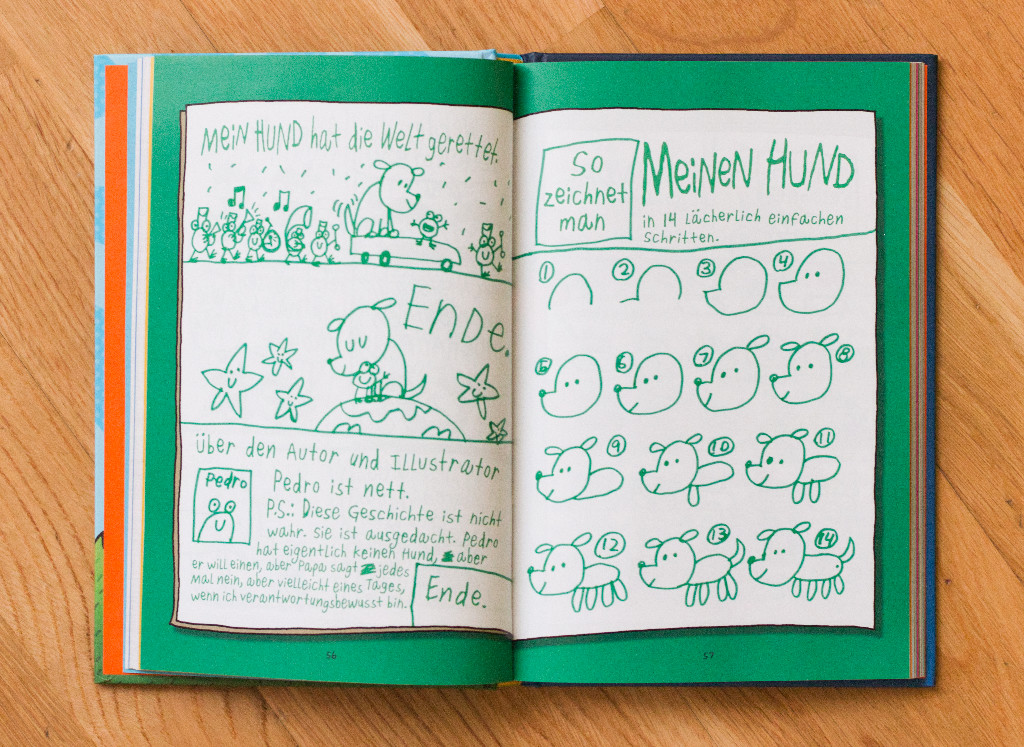 MEIN HUND hat die Welt gerettet.
Ende.
über den Autor und Illustrator
Pedro
Pedro ist nett.
P.S.: Diese Geschichte ist nicht
wahr. sie ist ausgedacht. Pedro
hat eigentlich keinen Hund, aber
er will einen, aber Papa sagt jedes
mal nein, aber vielleicht eines Tages,
wenn ich verantwortungsbewusst bin.
Ende.
56
So
zeichnet
man
MEINEN HUND
in 14 lächerlich einfachen
Schritten.
1 2 3 4
5 6 7 8
9 10 11
12 13 14
57